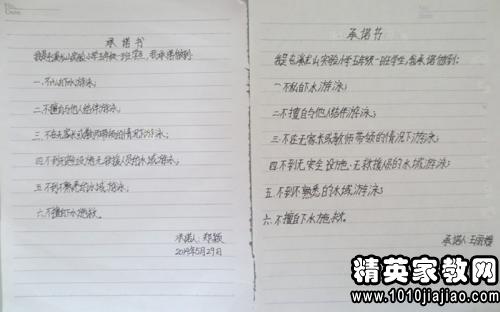 承诺书
我是屯溪龙山实验小学五年级一班学生,我承诺做到:
一.不私自下水游泳;
二.不擅自与他人结伴游泳;
三.不在无家长或教师带领的情况下游泳;
四.不到无安全设施、无救援人员的水域游泳;
五.不到不熟悉的水域游泳;
六.不擅自下水施救。
承诺人:郑颖
2014年5月29日
承诺书
我是屯溪龙山实验小学五年级一班学生,我承诺做到:
一.不私自下水游泳;
二.不擅自与他人结伴游泳;
三.不在无家长或教师带领的情况下游泳;
四.不到无安全设施、无救援人员的水域游泳;
五.不到不熟悉的水域游泳;
六.不擅自下水施救。
承诺人:王雨
精英家教网
www.1010jiajiao.com